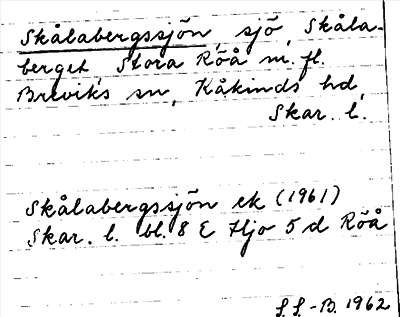 Skålabergssjön, sjö, Skåla-
berget Stora Röå m. fl.
Breviks sn, Kåkinds hd,
Skar. l.
Skålabergssjön ek (1961)
Skar. l. bl. 8 E Hjo 5 d Röå
S.S.-B. 1962